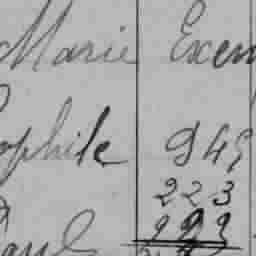 Marie Exem
ophile 949
223
Paul 929